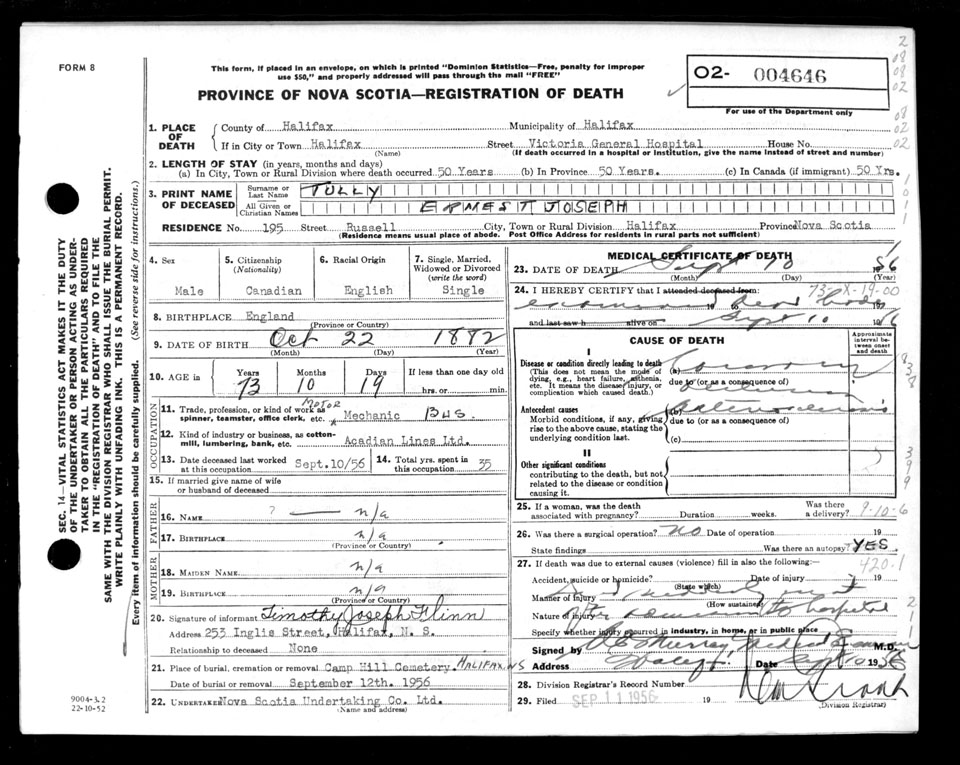 FORM 8
This form, if placed in an envelope, on which is printed "Dominion Statistics—Free, penalty for improper
use $50," and properly addressed will pass through the mail "FREE"
PROVINCE OF NOVA SCOTIA—REGISTRATION OF DEATH
O2- 004646
For use of the Department only
1. PLACE OF DEATH
County of Halifax Municipality of Halifax
If in City or Town Halifax Street Victoria General Hospital House No.
(Name) (If death occurred in a hospital or institution, give the name instead of street and number)
2. LENGTH OF STAY (in years, months and days)
(a) In City, Town or Rural Division where death occurred 50 Years (b) In Province 50 Years. (c) In Canada (if immigrant) 50 Yrs.
3. PRINT NAME OF DECEASED
Surname or Last Name TULLY
All Given or Christian Names ERNEST JOSEPH
RESIDENCE No. 195 Street Russell City, Town or Rural Division Halifax Province Nova Scotia
(Residence means usual place of abode. Post Office Address for residents in rural parts not sufficient)
4. Sex
Male
5. Citizenship (Nationality)
Canadian
6. Racial Origin
English
7. Single, Married, Widowed or Divorced (write the word)
Single
8. BIRTHPLACE England
(Province or Country)
9. DATE OF BIRTH Oct 22 1882
(Month) (Day) (Year)
10. AGE in Years Months Days If less than one day old
73 10 19 hrs. or min.
OCCUPATION
11. Trade, profession, or kind of work as spinner, teamster, office clerk, etc. MOTOR Mechanic BUS.
12. Kind of industry or business, as cotton-mill, lumbering, bank, etc. Acadian Lines Ltd.
13. Date deceased last worked at this occupation Sept.10/56
14. Total yrs. spent in this occupation 35
15. If married give name of wife or husband of deceased
FATHER
16. NAME ? — n/a
17. BIRTHPLACE n/a
(Province or Country)
MOTHER
18. MAIDEN NAME n/a
19. BIRTHPLACE n/a
(Province or Country)
20. Signature of informant Timothy Joseph Flinn
Address 253 Inglis Street, Halifax, N. S.
Relationship to deceased None
21. Place of burial, cremation or removal Camp Hill Cemetery. HALIFAX NS
Date of burial or removal September 12th. 1956
22. UNDERTAKER Nova Scotia Undertaking Co. Ltd.
(Name and address)
MEDICAL CERTIFICATE OF DEATH
23. DATE OF DEATH Sept 10 1956
(Month) (Day) (Year)
73-X-19-00
24. I HEREBY CERTIFY that I attended deceased from:
examined dead body
and last saw h alive on Sept 10 1956
CAUSE OF DEATH
Approximate interval between onset and death
I
Disease or condition directly leading to death
(This does not mean the mode of dying, e.g., heart failure, asthenia, etc. It means the disease, injury, or complication which caused death.)
(a) Coronary
due to (or as a consequence of)
Antecedent causes
Morbid conditions, if any, giving rise to the above cause, stating the underlying condition last.
(b)
due to (or as a consequence of)
(c)
II
Other significant conditions
contributing to the death, but not related to the disease or condition causing it.
25. If a woman, was the death associated with pregnancy? Duration weeks. Was there a delivery? 9-10-6
26. Was there a surgical operation? NO Date of operation 19
State findings Was there an autopsy? YES.
420.1
27. If death was due to external causes (violence) fill in also the following:
Accident, suicide or homicide? Date of injury 19
(State which)
Manner of injury
(How sustained)
Nature of injury hospital
Specify whether injury occurred in industry, in home, or in public place
Signed by Murray, Medical M.D.
Address Halifax Date Sept 1956
28. Division Registrar's Record Number
29. Filed SEP 11 1956 19
(Division Registrar)
SEC. 14—VITAL STATISTICS ACT MAKES IT THE DUTY
OF THE UNDERTAKER OR PERSON ACTING AS UNDER-
TAKER TO OBTAIN ALL THE PARTICULARS REQUIRED
IN THE "REGISTRATION OF DEATH" AND TO FILE THE
SAME WITH THE DIVISION REGISTRAR WHO SHALL ISSUE THE BURIAL PERMIT.
WRITE PLAINLY WITH UNFADING INK. THIS IS A PERMANENT RECORD.
Every item of information should be carefully supplied. (See reverse side for instructions).
9004-3.2
22-10-52